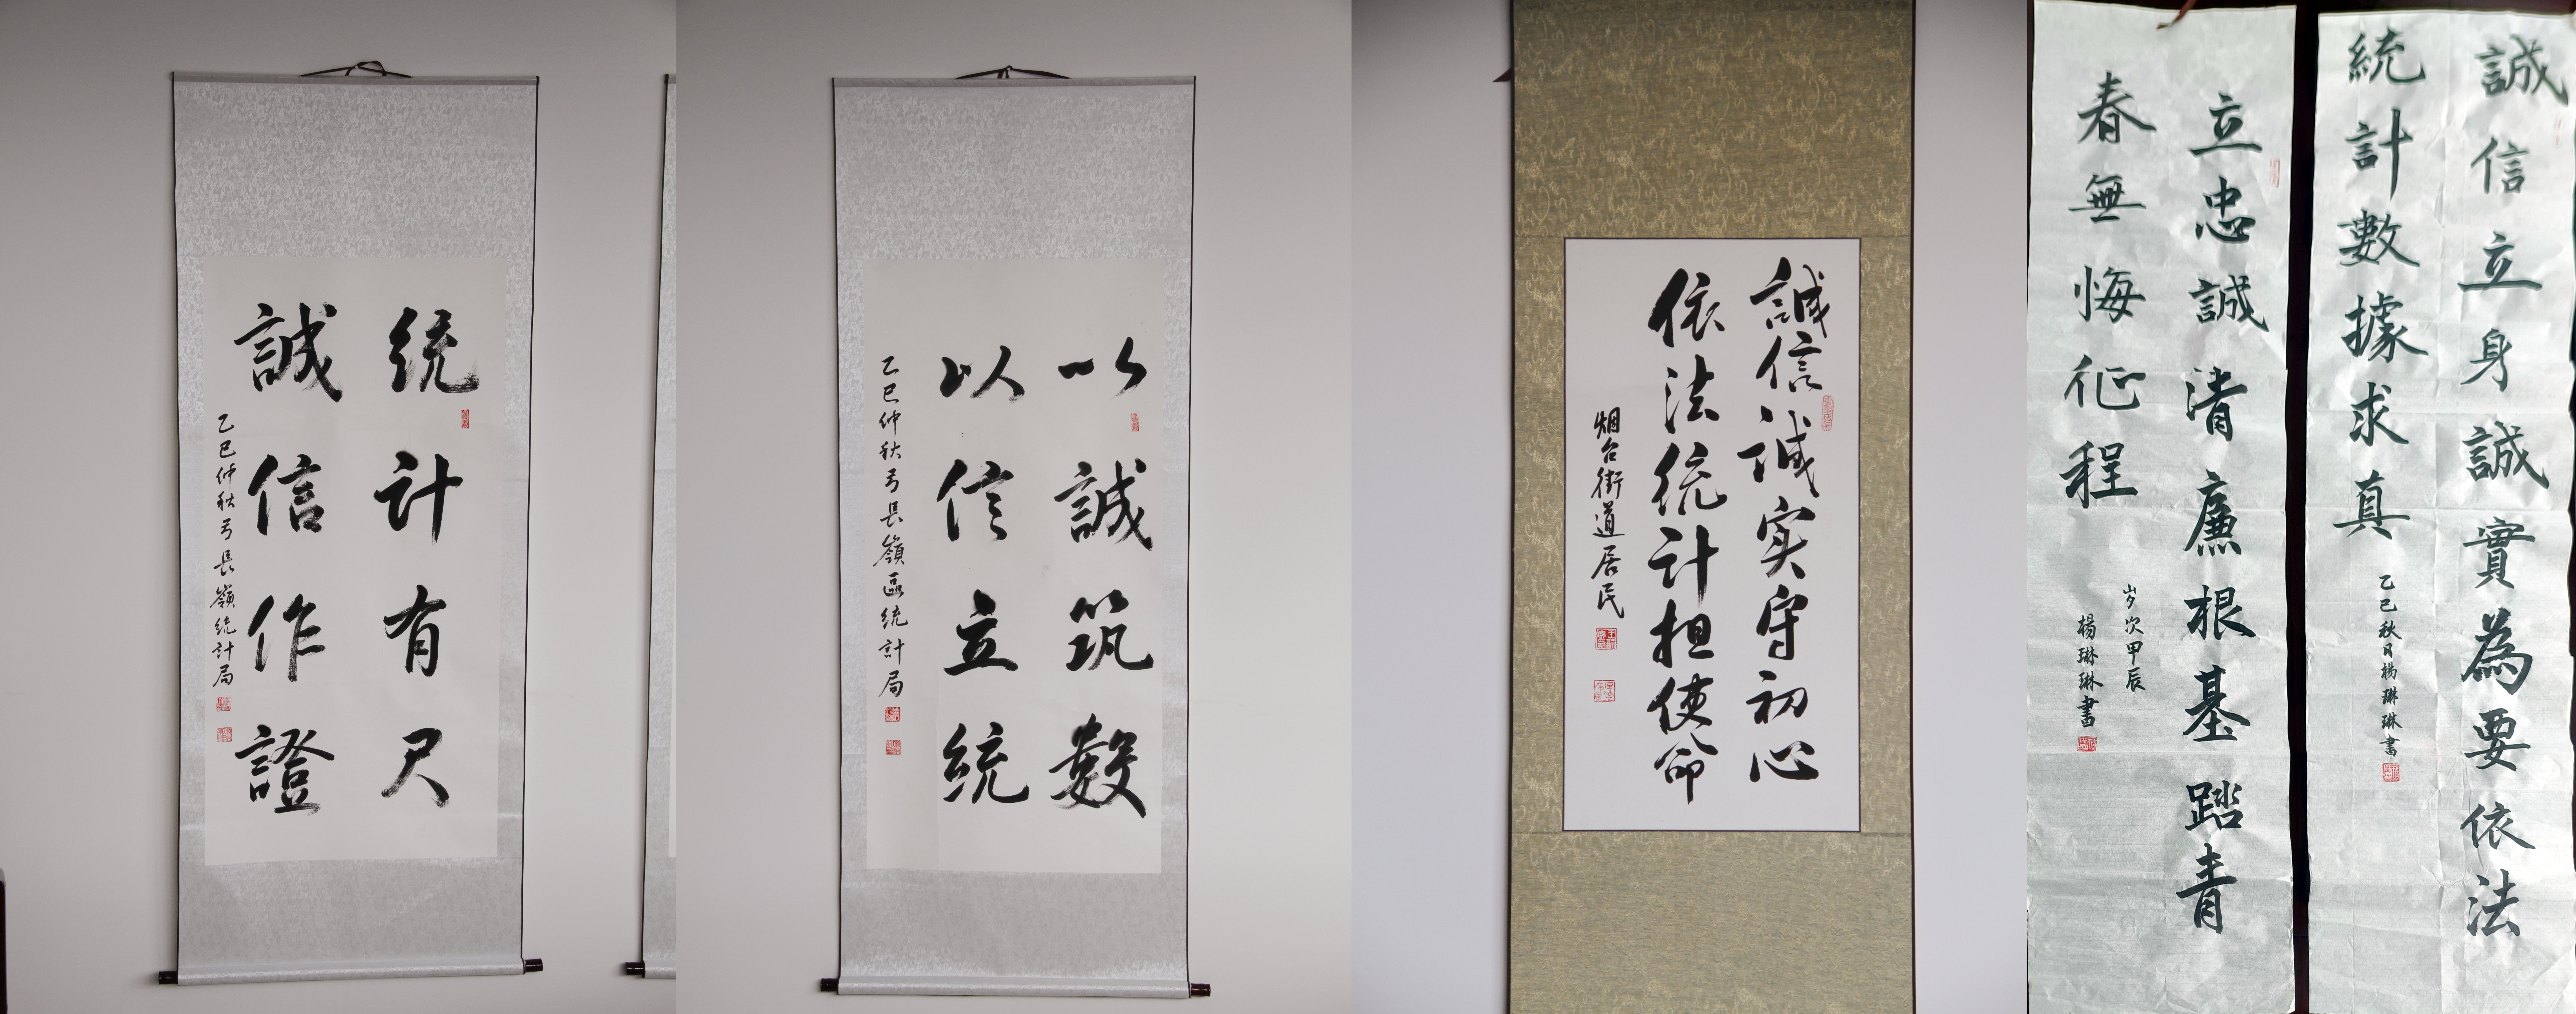 统计有尺
誠信作證
乙巳仲秋弓長嶺統計局
以誠筑數
以信立統
乙巳仲秋弓長嶺區統計局
誠信诚实守初心
依法统计担使命
烟台街道居民
立忠誠清廉根基踏青
春無悔征程
岁次甲辰
楊琳琳書
誠信立身誠實為要依法
統計數據求真
乙巳秋日楊琳琳書